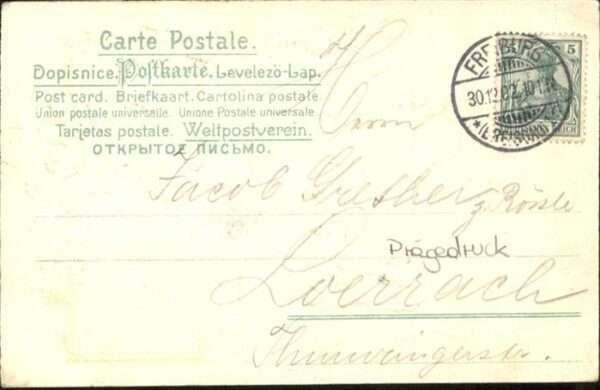 Carte Postale.
Dopisnice. Postkarte. Levelező-Lap.
Post card. Briefkaart. Cartolina postale
Union postale universelle. Unione Postale universale
Tarjetas postale. Weltpostverein.
ОТКРЫТОЕ ПИСЬМО.
FREIBURG
30.12.02. 10-11
5
REICH
Herrn
Jacob Grether
z. Rössle
Prägedruck
Loerrach